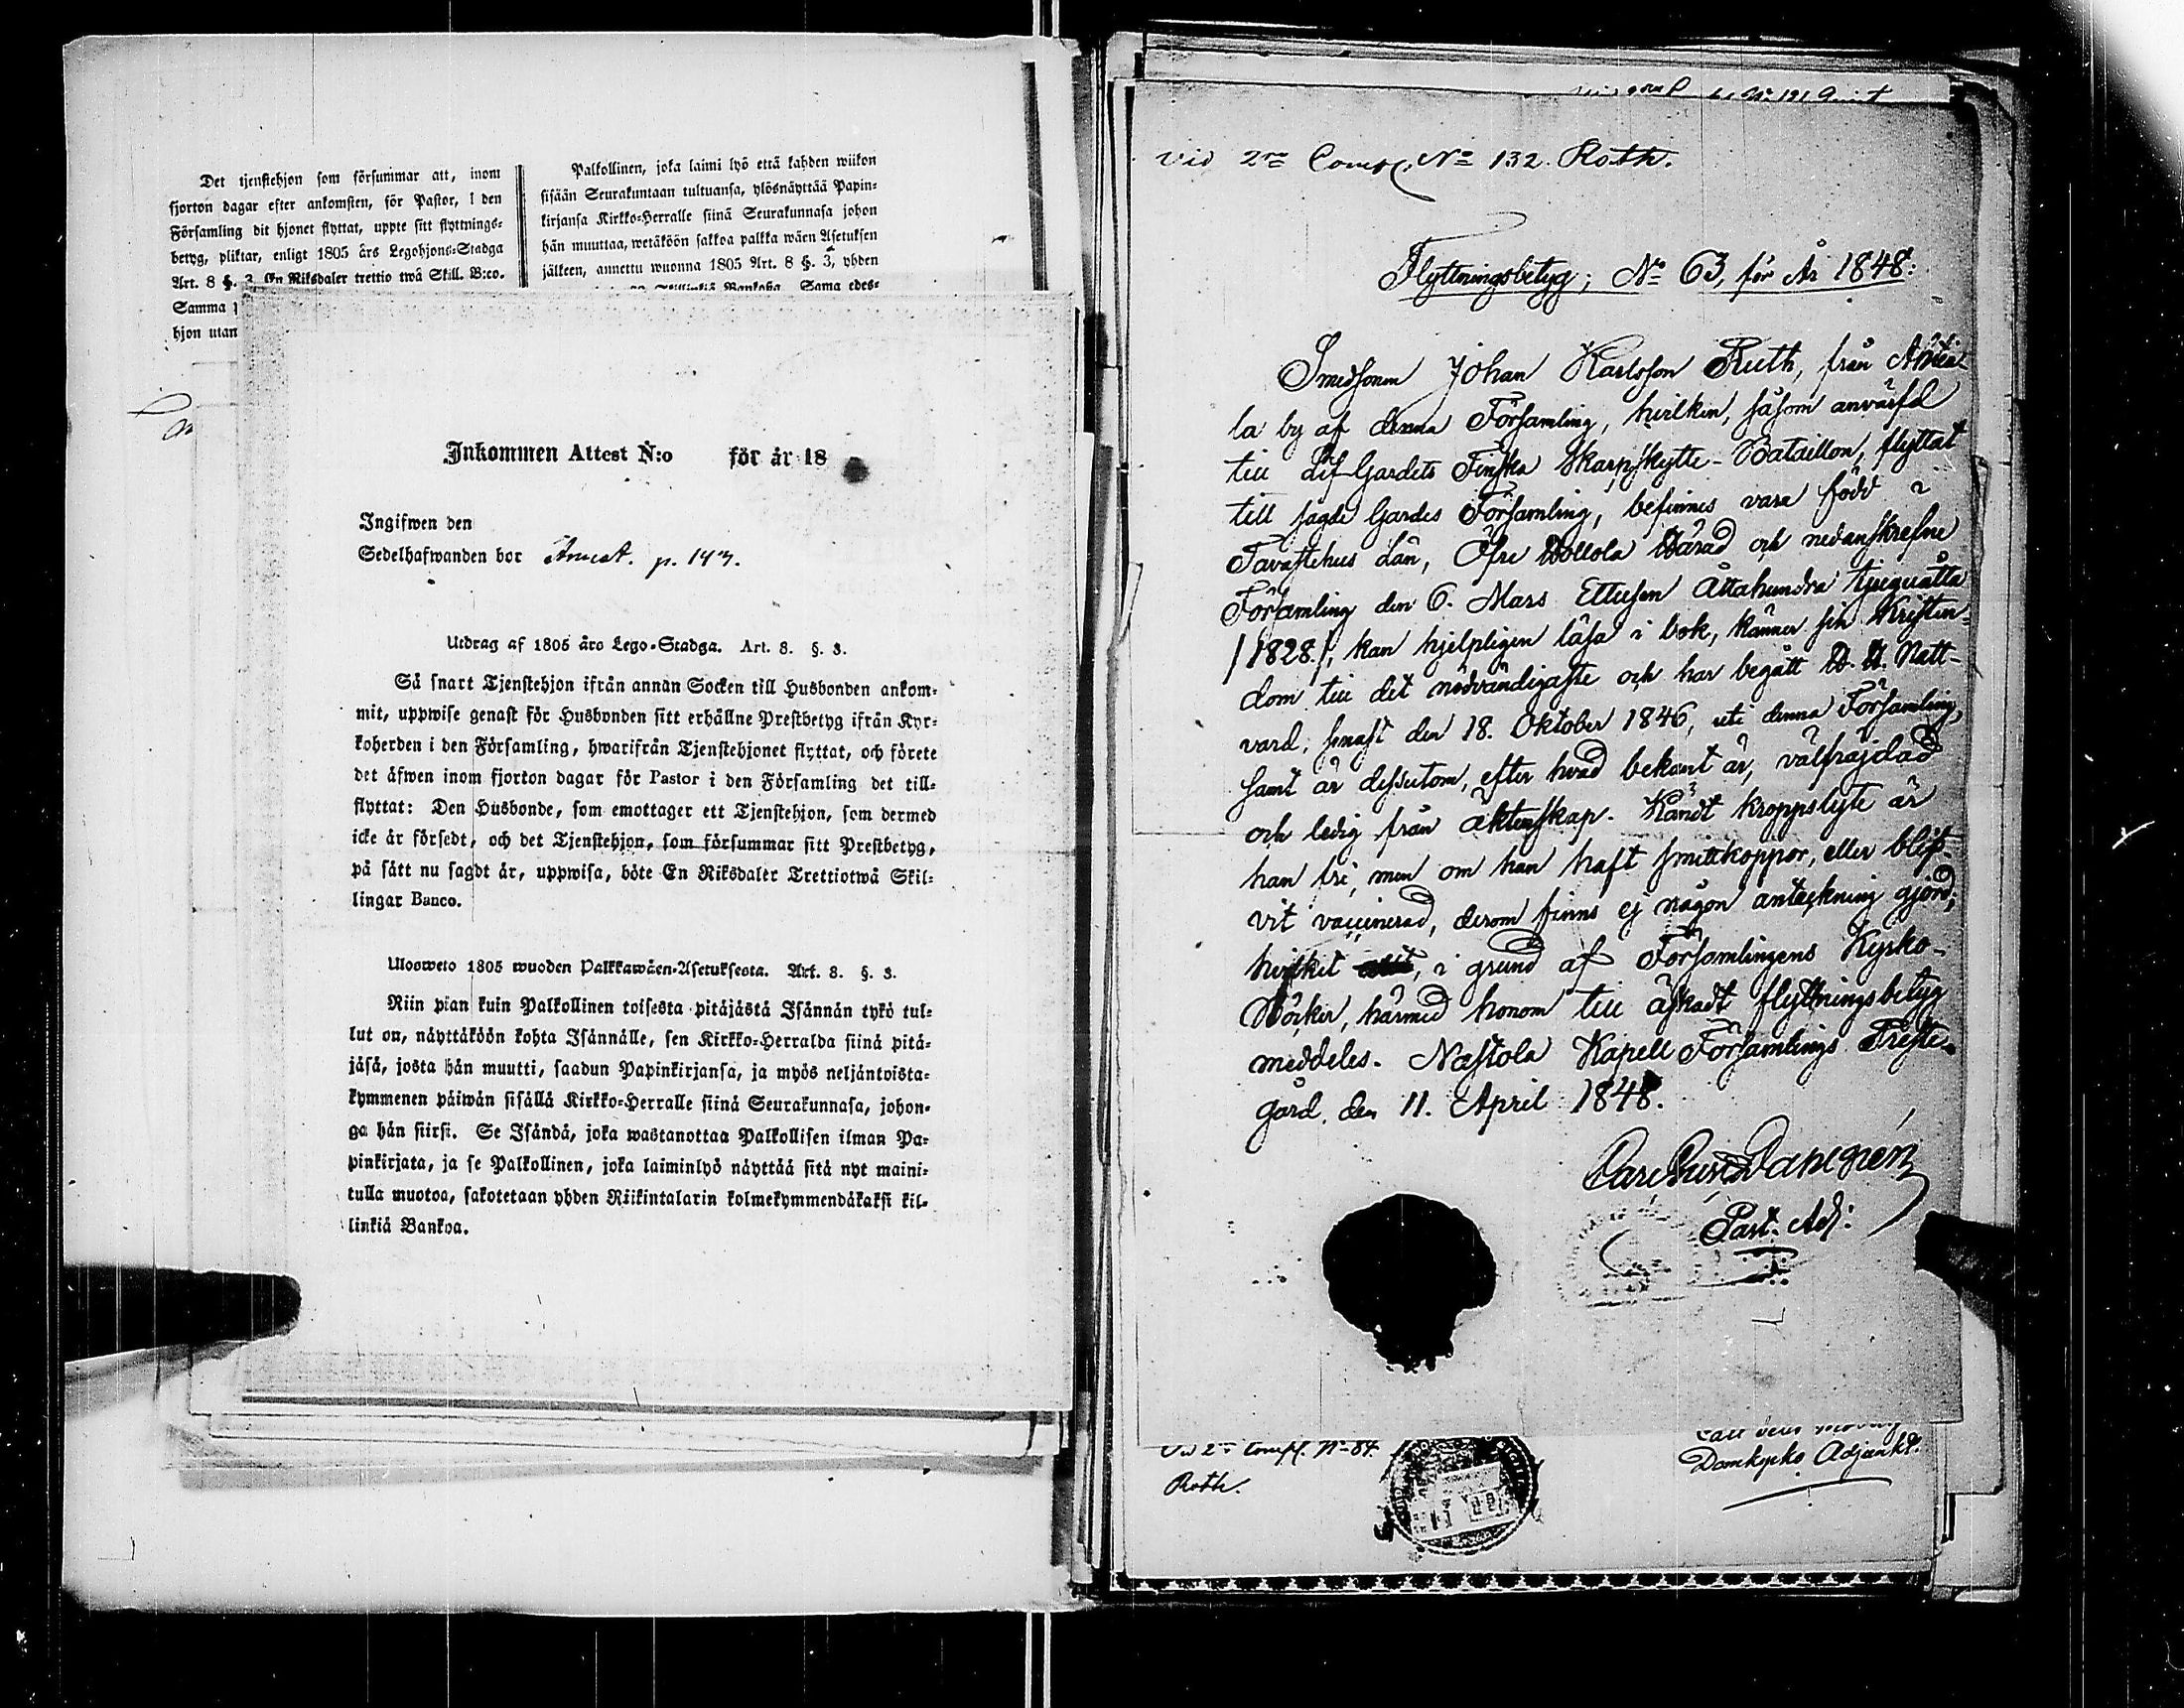 Det tjenstehjon som försummar att, inom
fjorton dagar efter ankomsten, för Pastor, i den
Församling dit hjonet flyttat, uppte sitt flyttnings-
betyg, pliktar, enligt 1805 års Legohjons-Stadga
Art. 8 §. 3. En Riksdaler trettio twå Skill. B:co.
Samma
hjon utan
Palkollinen, joka laimi lyö että kahden wiikon
sisään Seurakuntaan tultuansa, ylösnäyttää Papin-
kirjansa Kirkko-Herralle siinä Seurakunnasa johon
hän muuttaa, wetäköön sakkoa palkka wäen Asetuksen
jälkeen, annettu wuonna 1805 Art. 8 §. 3, yhden
Bankoha. Sama edes-
Inkommen Attest N:o för år 18
Ingifwen den
Sedelhafwanden bor p. 147.
Utdrag af 1805 års Lego-Stadga. Art. 8. §. 3.
Så snart Tjenstehjon ifrån annan Socken till Husbonden ankom-
mit, uppwise genast för Husbonden sitt erhållne Prestbetyg ifrån Kyr-
koherden i den Församling, hwarifrån Tjenstehjonet flyttat, och förete
det äfwen inom fjorton dagar för Pastor i den Församling det till-
flyttat: Den Husbonde, som emottager ett Tjenstehjon, som dermed
icke är försedt, och det Tjenstehjon, som försummar sitt Prestbetyg,
på sätt nu sagdt är, uppwisa, böte En Riksdaler Trettiotwå Skil-
lingar Banco.
Ulosweto 1805 wuoden Palkkawäen-Asetuksesta. Art. 8. §. 3.
Niin pian kuin Palkollinen toisesta pitäjästä Isännän tykö tul-
lut on, näyttäköön kohta Isännälle, sen Kirkko-Herralda siinä pitä-
jäsä, josta hän muutti, saadun Papinkirjansa, ja myös neljäntoista-
kymmenen päiwän sisällä Kirkko-Herralle siinä Seurakunnasa, johon-
ga hän siirsi. Se Isändä, joka wastanottaa Palkollisen ilman Pa-
pinkirjata, ja se Palkollinen, joka laiminlyö näyttää sitä nyt maini-
tulla muotoa, sakotetaan yhden Riikintalarin kolmekymmendäkaksi kil-
linkiä Bankoa.
Vid 2:ra Comp. No 132. Roth.
Flyttningsbetyg; No 63, för År 1848:
Smedsonen Johan Karlsson Ruth, från
la by af denna Församling, hvilken, såsom anvärfd
till Lif-Gardets Finska Skarpskytte-Bataillon, flyttat
till sagde Gardes Församling, befinnes vara född i
Tavastehus Län, Öfre Hollola Härad och nedanskrefne
Församling den 6. Mars Ettusen Åttahundra tjuguåtta
/1828/, kan hjelpligen läsa i bok, känner sin Kristen-
dom till det nödvändigaste och har begått H. H. Natt-
vard, senast den 18. Oktober 1846, uti denna Församling,
samt är dessutom, efter hvad bekant är, välfräjdad
och ledig från äktenskap. Kändt kroppslyte är
han fri, men om han haft smittkoppor, eller blif-
vit vaccinerad, derom finns ej någon anteckning gjord;
hvilket, i grund af Församlingens Kyrko-
Böcker, härmed honom till äskadt flyttningsbetyg
meddeles. Nastola Kapell Församlings Preste-
gård, den 11. April 1848.
Past. Adj:
Vid 2:ra Comp. No 84.
Roth.
Domkyrko Adjunkt.